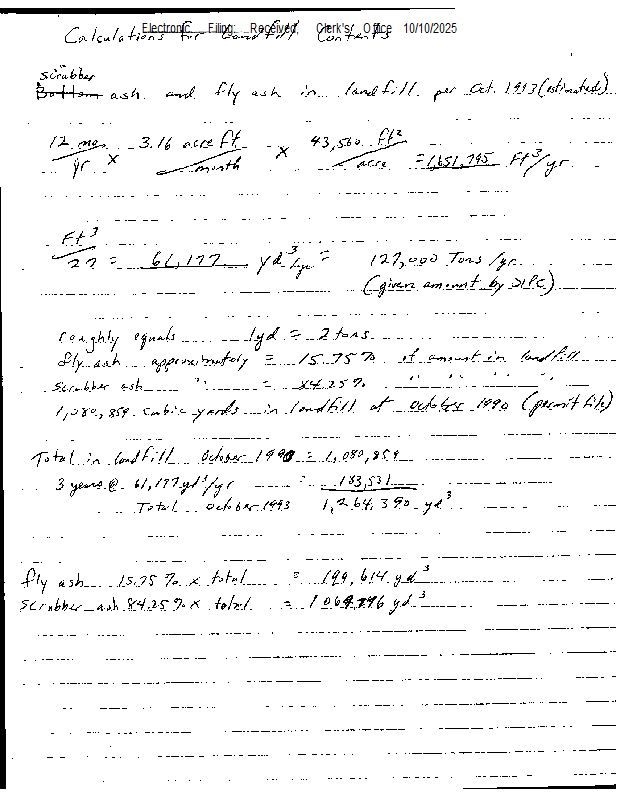 Electronic Filing: Received, Clerk's Office 10/10/2025
Calculations for Landfill Contents
scrubber
Bottom ash and fly ash in landfill per Oct. 1993 (estimated)
12 mo / yr x 3.16 acre ft / month x 43,560 ft² / acre = 1,651,795 Ft³/yr
Ft³ / 27 = 61,177 yd³/yr = 127,000 Tons/yr
(given amount by SIPC)
roughly equals 1yd = 2 tons
fly ash approximately = 15.75% of amount in landfill
scrubber ash " = 84.25% " " " "
1,080,859 cubic yards in landfill at october 1990 (permit file)
Total in landfill October 1990 = 1,080,859
3 years @ 61,177 yd³/yr = 183,531
Total october 1993 1,264,390 yd³
fly ash 15.75% x total = 199,614 yd³
scrubber ash 84.25% x total = yd³